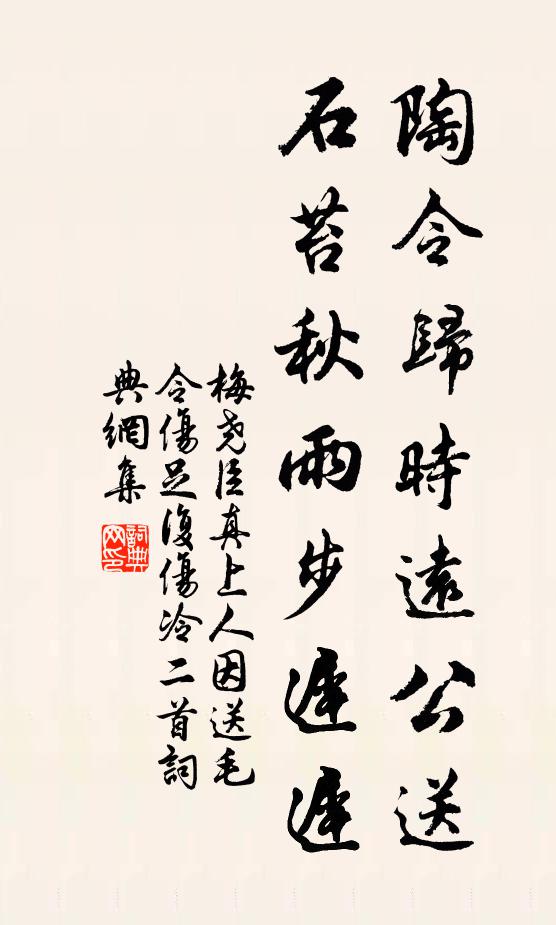 陶令歸時遠公送
石苔秋雨步遲遲
梅堯臣真上人因送毛
令傷足復傷冷二首詞
典網集
詞典
网印